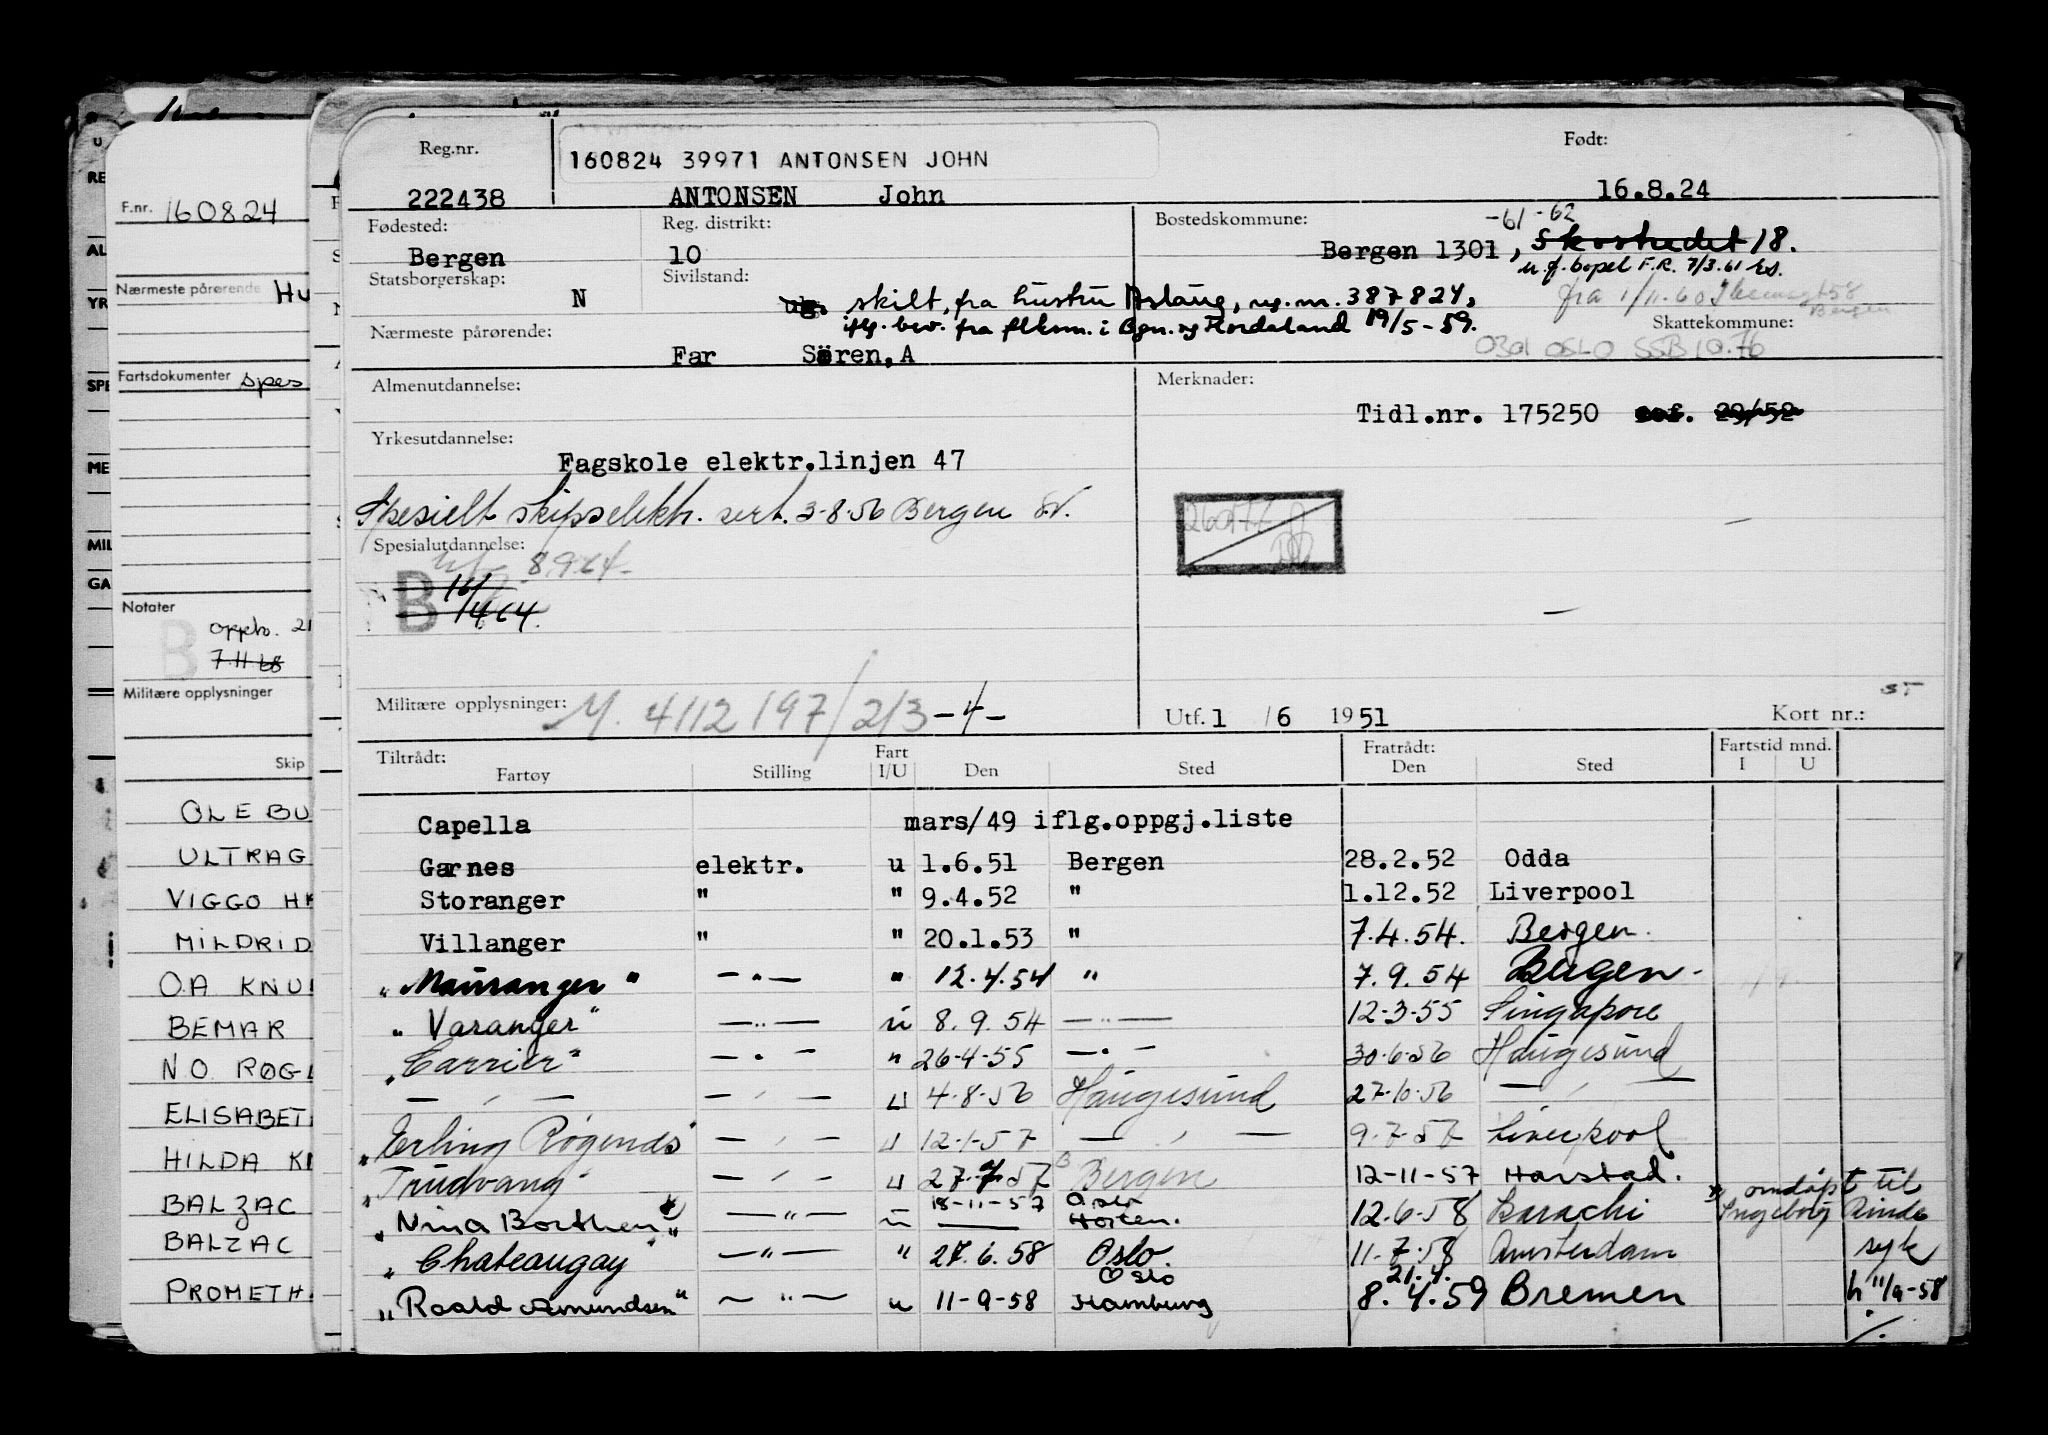 F.nr. 160824
Nærmeste pårørende Hu
Fartsdokumenter spes
Notater
B oppb. 21
7.11.68
Militære opplysninger
Skip
OLE BU
ULTRAG
VIGGO H
MILDRID
O.A KNU
BEMAR
N.O. RØG
ELISABET
HILDA K
BALZAC
BALZAC
PROMETH
RE
AL
YR
SPE
ME
MIL
GA
Reg.nr.
222438
160824 39971 ANTONSEN JOHN
ANTONSEN John
Født:
16.8.24
Fødested:
Bergen
Reg. distrikt:
10
Bostedskommune: -61 -62
Bergen 1301, Skostredet 18.
u.f. bopel F.R. 7/3.61 Es.
fra 1/11.60 58
Bergen
Statsborgerskap:
N
Sivilstand:
ug. skilt, fra hustru Aslaug, reg.nr. 387824,
iflg. bev. fra flksm. i Bgn. og Hordaland 19/5-59.
Nærmeste pårørende:
Far Søren, A
Skattekommune:
0301 OSLO SSB 10.76
Almenutdannelse:
Merknader:
Tidl.nr. 175250 29/52
Yrkesutdannelse:
Fagskole elektr.linjen 47
Spesielt skipselektr. sert. 3-8-56 Bergen
Spesialutdannelse:
8.9.64
B 16/
14 64.
Militære opplysninger: M. 4112 197/2/3 -4-
Utf. 1 / 6 1951
Kort nr.:
Tiltrådt:
Fartøy Stilling Fart I/U Den Sted
Fratrådt:
Den Sted
Fartstid mnd.
I U
Capella mars/49 iflg.oppgj.liste
Garnes elektr. u 1.6.51 Bergen 28.2.52 Odda
Storanger " " 9.4.52 " 1.12.52 Liverpool
Villanger " " 20.1.53 " 7.4.54. Bergen.
"Mauranger" — " — " 12.4.54 " 7.9.54 Bergen -
"Varanger" — " — u 8.9.54 — " — 12-3-55 Singapore
"Carrier" — " — " 26-4-55 — " — 30-6-56 Haugesund
— " — — " — u 4-8-56 Haugesund 27-10-56 — " —
"Erling Røgends" — " — u 12-1-57 — " — 9-7-57 Liverpool
"Trudvang" — " — u 27-7-57 Bergen 12-11-57 Harstad.
"Nina Borthen" x — " — u 18-11-57 Oslo Horten. 12.6.58 Karachi x omdøpt til Ingeborg
"Chateaugay" — " — " 27.6.58 Oslo. 11-7-58 Amsterdam syk
"Roald Amundsen" — " — u 11-9-58 Oslo Hamburg 21.4. 8.4.59 Bremen h 11/9-58
./.